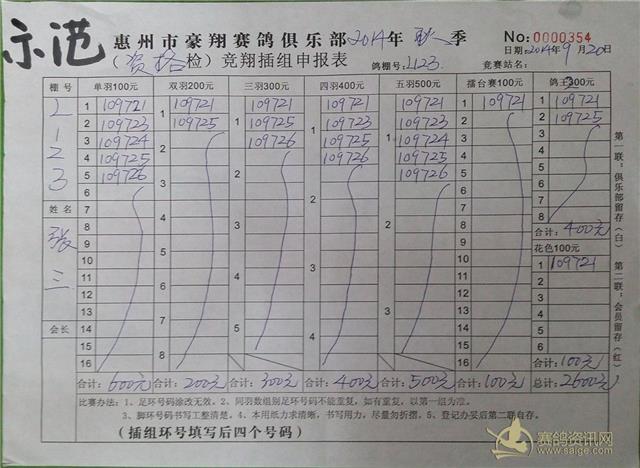 示范
惠州市豪翔赛鸽俱乐部2014年 秋 季
No: 0000354
(资格检) 竞翔插组申报表
日期:2014年9月20日
鸽棚号:L123
竞赛站名:
棚号 单羽100元 双羽200元 三羽300元 四羽400元 五羽500元 擂台赛100元 鸽王200元
L123
姓名
张三
会长
1 109721
2 109723
3 109724
4 109725
5 109726
6
7
8
9
10
11
12
13
14
15
16
合计:600元
1 109721
109725
2
3
4
5
6
7
8
合计:200元
1 109721
109725
109726
2
3
4
5
合计:300元
1 109721
109723
109725
109726
2
3
4
合计:400元
1 109721
109723
109724
109725
109726
2
3
合计:500元
1 109721
2
3
4
5
6
7
8
9
10
11
12
13
14
15
16
合计:100元
1 109721
2 109725
3
4
5
6
7
8
合计:400元
花色100元
1 109721
2
3
4
5
6
合计:100元
总计:2600元
第一联:俱乐部留存(白)
第二联:会员留存(红)
比赛办法:1、足环号码涂改无效。2、同羽数组别足环号码不能重复,如有重复,以第一组为准。
3、脚环号码书写工整清楚。4、本用纸力求清晰,书写用力,尽量勿折摺。5、登记办妥后第二联自存。
(插组环号填写后四个号码)
赛鸽资讯网
www.saige.com